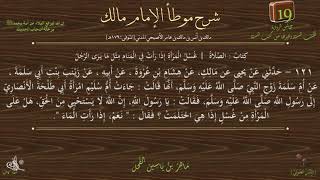 19
شرح موطأ الإمام مالك
كتاب : الصلاة | غسل المرأة إذا رأت في المنام مثل ما يرى الرجل
١٢١ - حدثني عن يحيى عن مالك، عن هشام بن عروة، عن أبيه، عن زينب بنت أبي سلمة،
عن أم سلمة زوج النبي صلى الله عليه وسلم، أنها قالت : جاءت أم سليم امرأة أبي طلحة الأنصاري
إلى رسول الله صلى الله عليه وسلم، فقالت : يا رسول الله، إن الله لا يستحيي من الحق. هل على
المرأة من غسل إذا هي احتلمت ؟ فقال : " نعم، إذا رأت الماء ".
ماهر بن ياسين الفحل